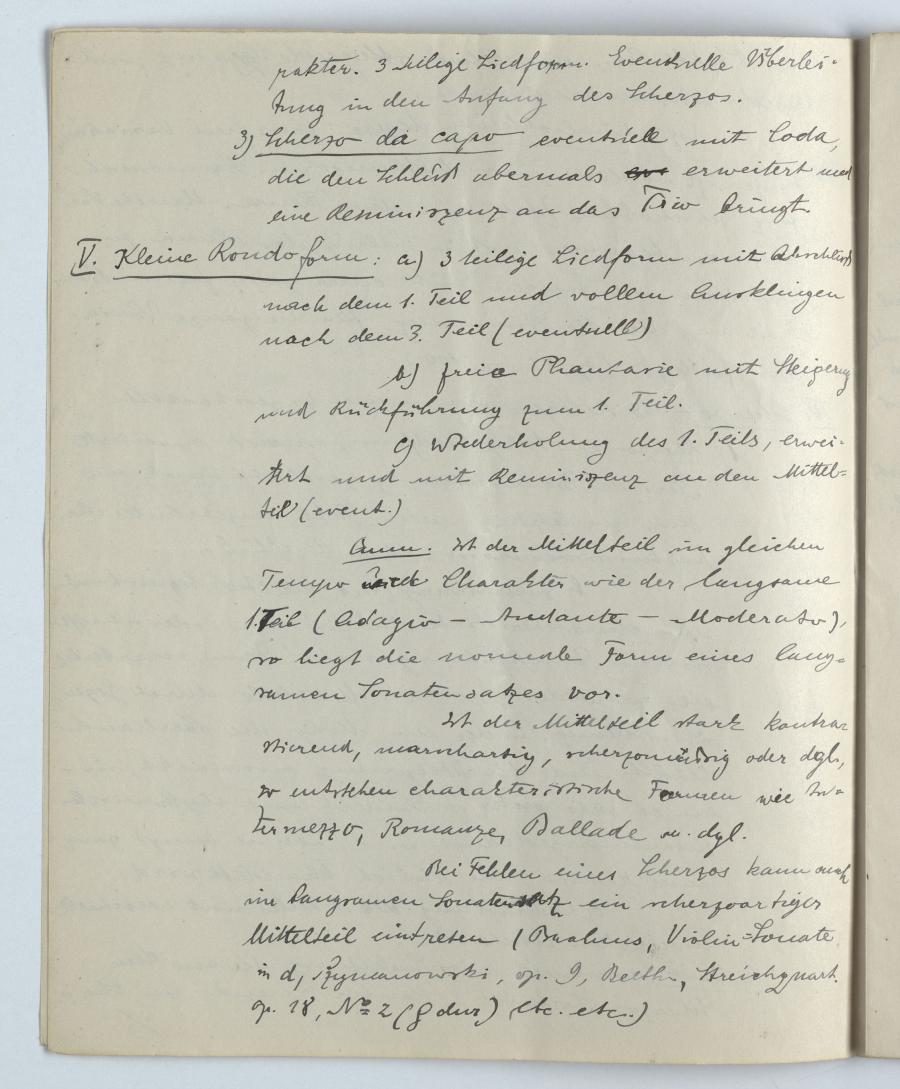 rakter. 3 teilige Liedform. Eventuelle Überlei-
tung in den Anfang des Scherzos.
3) Scherzo da capo eventuell mit Coda,
die den Schluß abermals erweitert und
eine Reminiszenz an das Trio bringt.
V. Kleine Rondoform: a) 3 teilige Liedform mit Abschluß
nach dem 1. Teil und vollem Ausklingen
nach dem 3. Teil (eventuell)
b) freie Phantasie mit Steigerung
und Rückführung zum 1. Teil.
c) Wiederholung des 1. Teils, erwei-
tert und mit Reminiszenz an den Mittel-
teil (event.)
Anm. Ist der Mittelteil im gleichen
Tempo Charakter wie der langsame
1. Teil (Adagio – Andante – Moderato),
so liegt die normale Form eines lang-
samen Sonatensatzes vor.
Ist der Mittelteil stark kontra-
stierend, marschartig, scherzomäßig oder dgl.,
so entstehen charakteristische Formen wie In-
termezzo, Romanze, Ballade u. dgl.
Bei Fehlen eines Scherzos kann auch
im langsamen Sonatensatz ein scherzoartiger
Mittelteil eintreten (Brahms, Violin-Sonate
in d, Szymanowski, op. 9, Beeth., Streichquart.
op. 18, No 2 (g dur) etc. etc.)